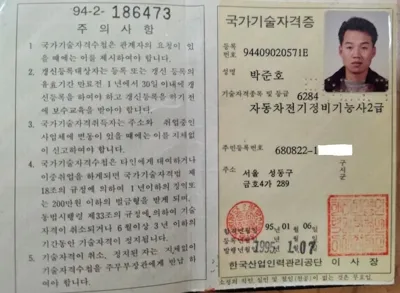 94-2- 186473
주 의 사 항
1. 국가기술자격수첩은 관계자의 요청이 있을 때에는 이를 제시하여야 합니다.
2. 갱신등록대상자는 등록 또는 갱신 등록의
유효기간 만료전 1년에서 30일 이내에 갱
신등록을 하여야 하고 갱신등록을 하기 전
에 보수교육을 받아야 합니다.
3. 국가기술자격취득자는 주소와 취업중인
사업체에 변동이 있을 때에는 이를 지체없
이 신고하여야 합니다.
4. 국가기술자격수첩은 타인에게 대여하거나
이중취업을 하게되면 국가기술자격법 제
18조의 규정에 의하여 1년이하의 징역또
는 200만원 이하의 벌금형을 받게 되며,
동법시행령 제33조의 규정에 의하여 기술
자격이 취소되거나 6월이상 3년 이하의
기간동안 기술자격이 정지됩니다.
5. 기술자격이 취소, 정지된 자는 지체없이
기술자격수첩을 주무부장관에게 반납 하
여야 합니다.
국가기술자격증
등록
번호 94409020571E
성명 박준호
기술자격종목 및 등급 6284
자동차전기정비기능사2급
주민등록번호 680822-1
주소 서울 성동구
금호4가 289
구
시
군
합격년월일 95년 01월 06일
등록년월일
발행년월일 1995. 1. 07
한국산업인력관리공단 이 사 장